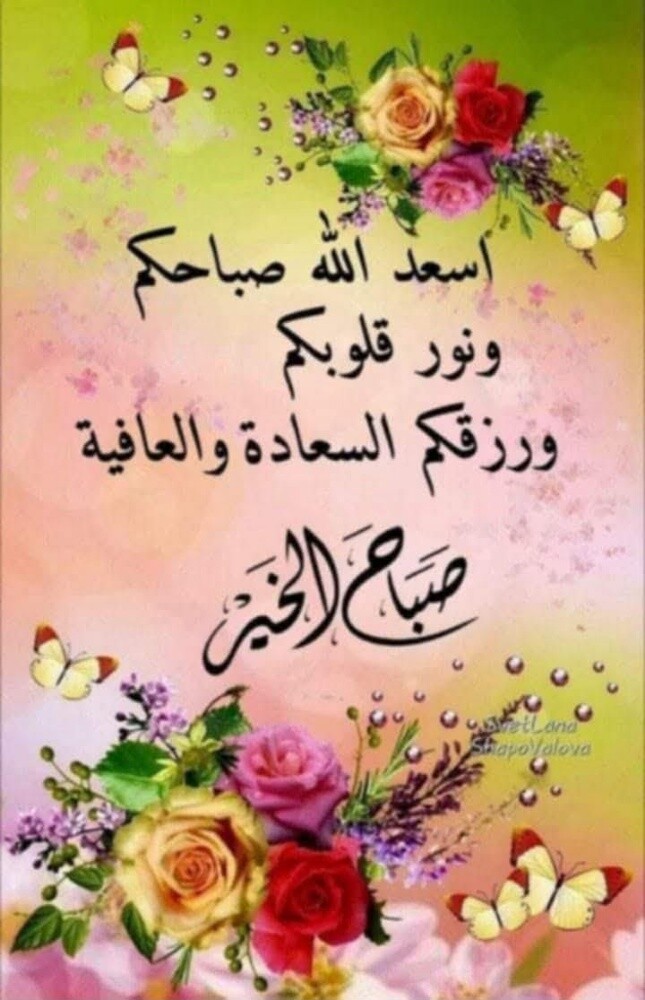 اسعد الله صباحكم
ونور قلوبكم
ورزقكم السعادة والعافية
صَبَاح الخَيْر
SvetLana
ShapoValova